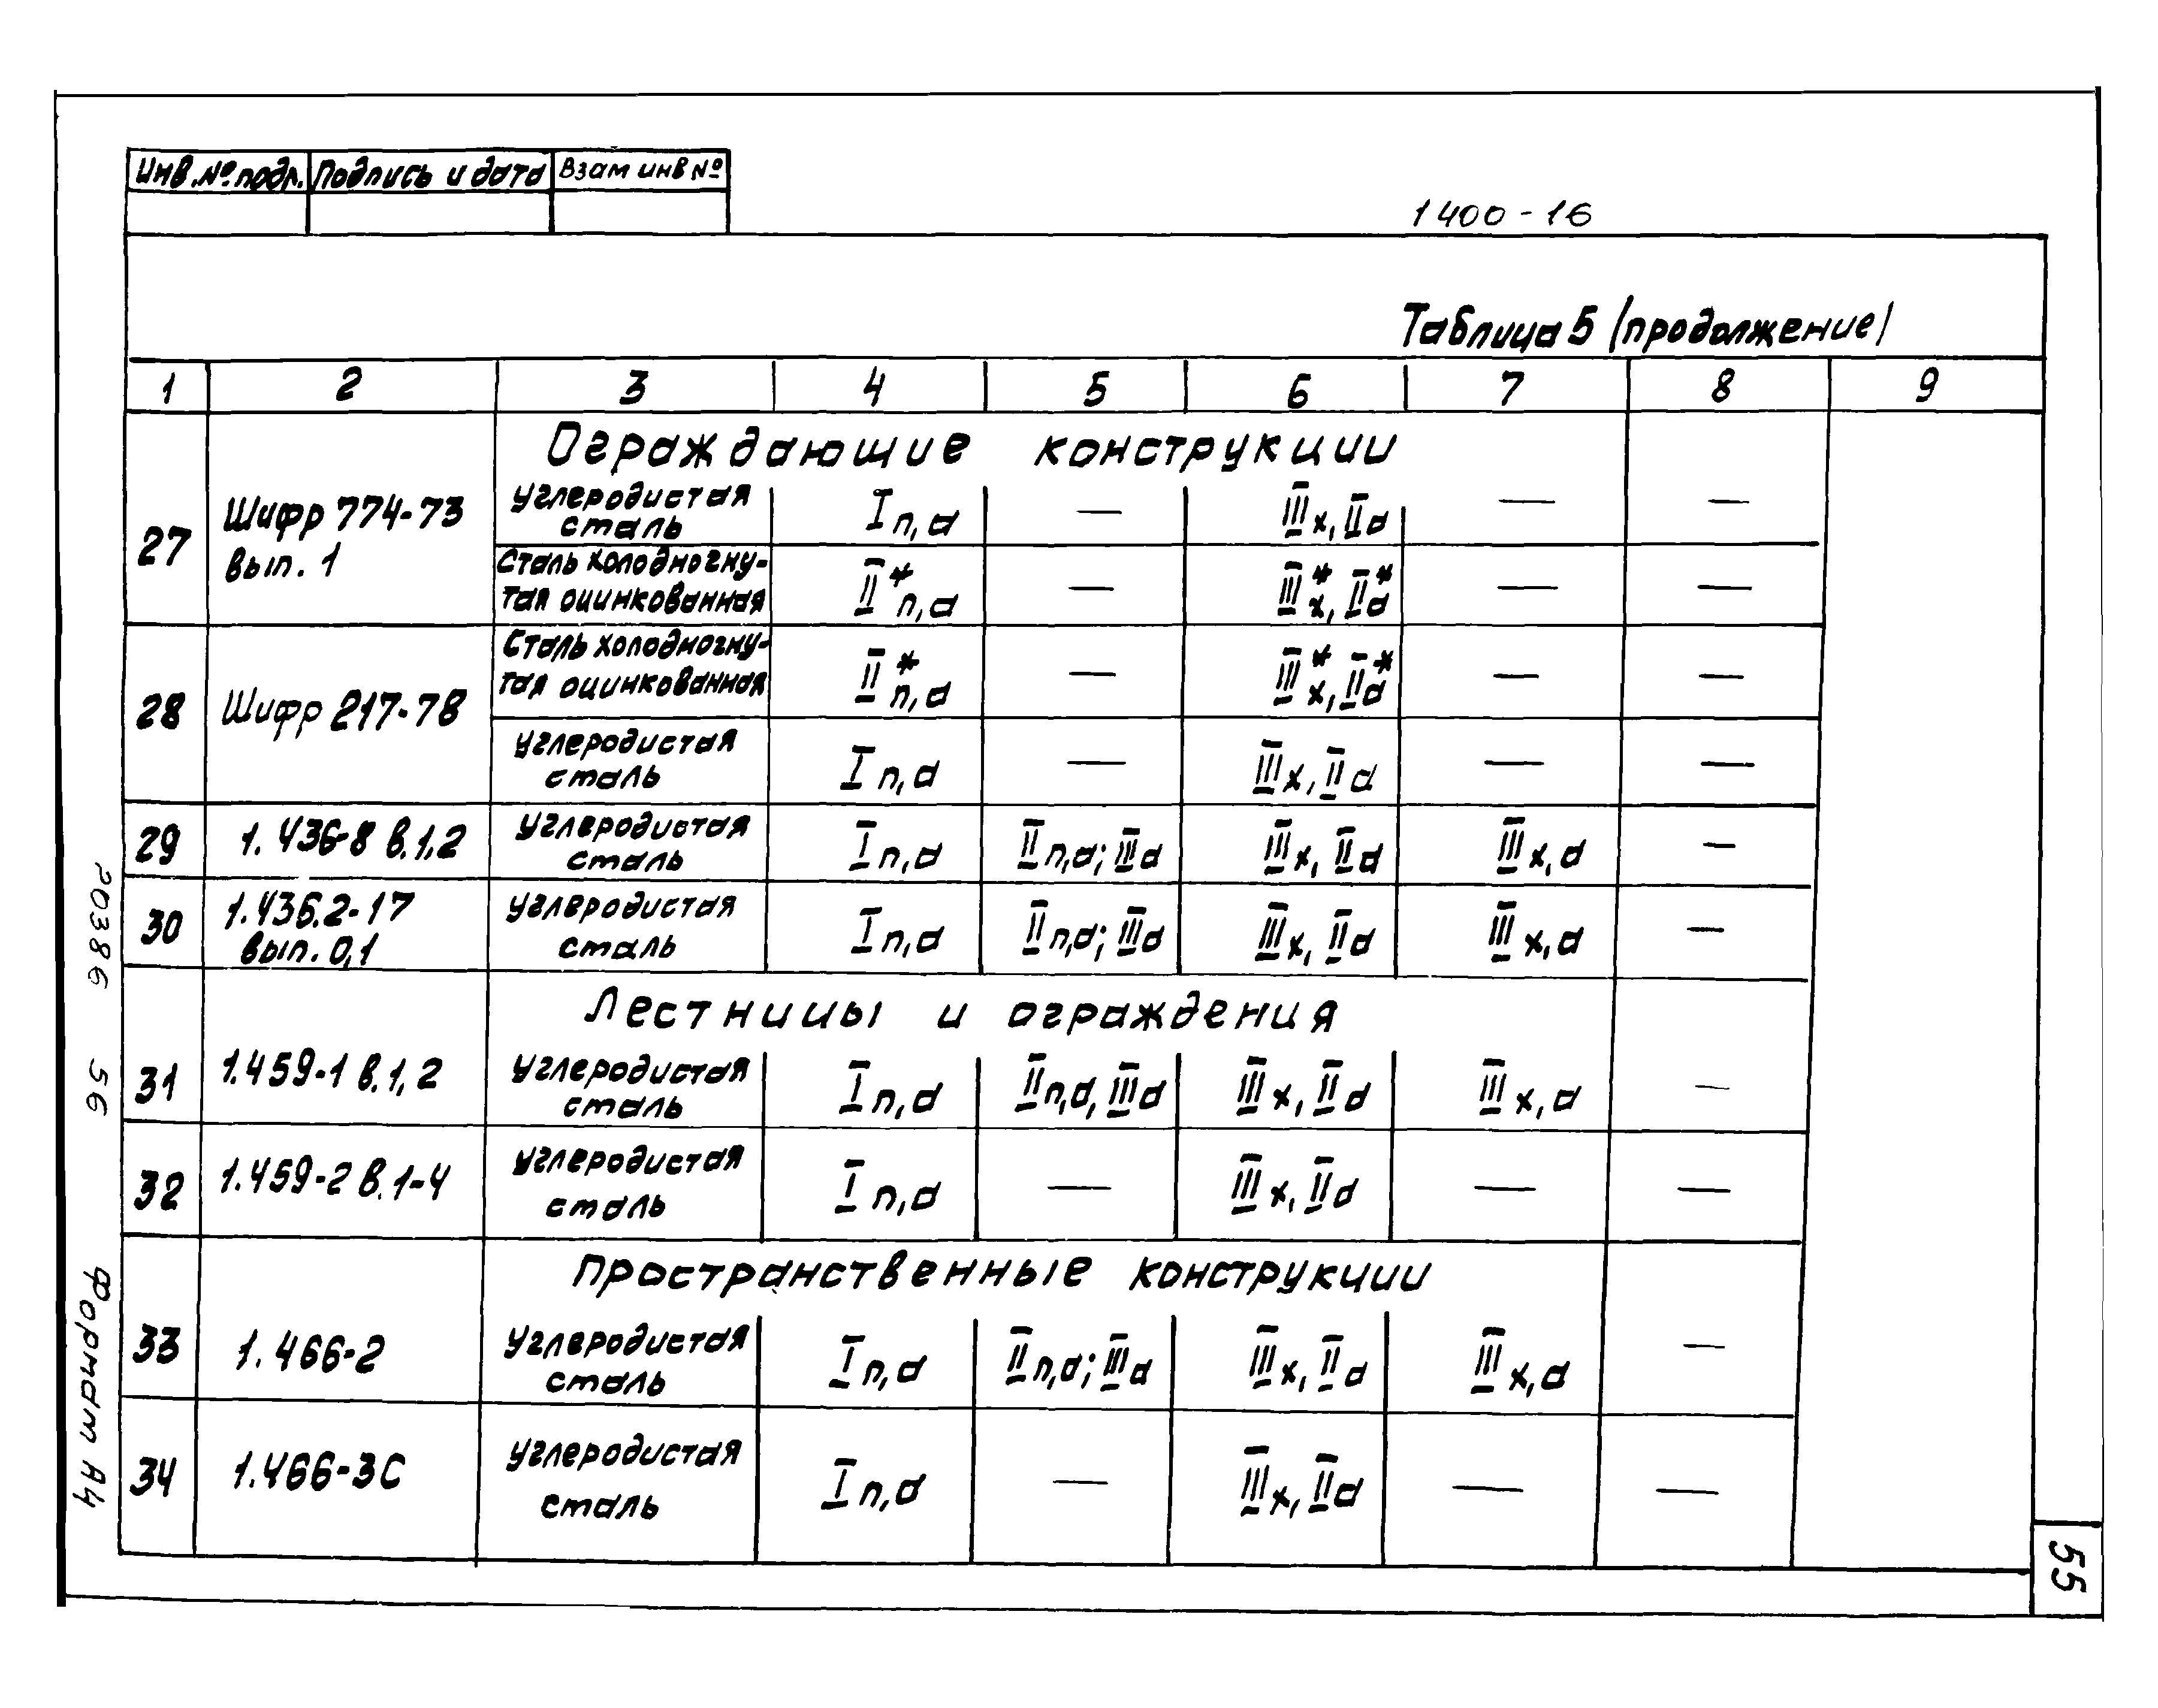 Инв.№ подл. Подпись и дата Взам инв №
1400-16
Таблица 5 (продолжение)
1 2 3 4 5 6 7 8 9
Ограждающие конструкции
27 Шифр 774-73 вып. 1 углеродистая сталь I п,а — III х, II а — —
Сталь холодногнутая оцинкованная II* п,а — III* х, II* а — —
28 Шифр 217-78 Сталь холодногнутая оцинкованная II* п,а — III* х, II* а — —
углеродистая сталь I п,а — III х, II а — —
29 1.436-8 в.1,2 углеродистая сталь I п,а II п,а; III а III х, II а III х,а —
30 1.436.2-17 вып. 0,1 углеродистая сталь I п,а II п,а; III а III х, II а III х,а —
Лестницы и ограждения
31 1.459-1 в.1,2 углеродистая сталь I п,а II п,а, III а III х, II а III х,а —
32 1.459-2 в.1-4 углеродистая сталь I п,а — III х, II а — —
Пространственные конструкции
33 1.466-2 углеродистая сталь I п,а II п,а; III а III х, II а III х,а —
34 1.466-3С углеродистая сталь I п,а — III х, II а — —
20386 56
Формат А4
55